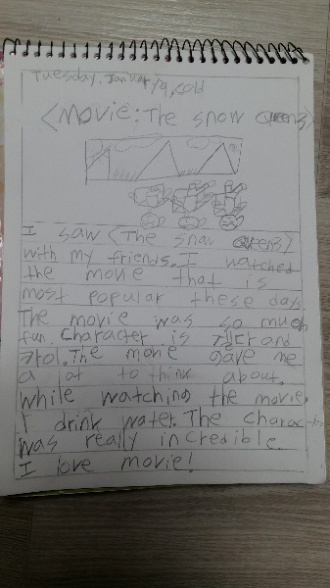 Tuesday, January, 9, cold
<MOVIE: The snow Queen3>
I saw <The snow Queen3>
with my friends. I watched
the movie that is
most popular these days
The movie was so much
fun. Character is and
The movie gave me
a lot to think about.
while watching the movie,
I drink water. The charac-
was really incredible.
I love movie!